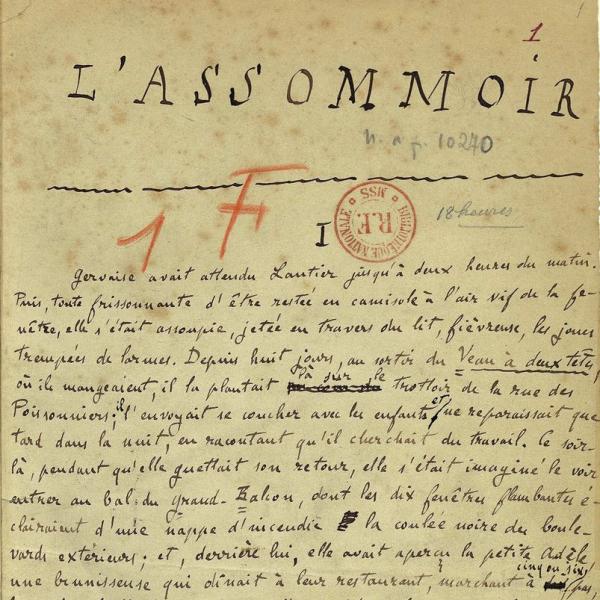 1
L'ASSOMMOIR
n. a. f. 10270
1 F
BIBLIOTHEQUE NATIONALE MSS R.F.
18 heures
I
Gervaise avait attendu Lantier jusqu'à deux heures du matin.
Puis, toute frissonnante d'être restée en camisole à l'air vif de la fe-
nêtre, elle s'était assoupie, jetée en travers du lit, fiévreuse, les joues
trempées de larmes. Depuis huit jours, au sortir du Veau à deux têtes,
où ils mangeaient, il la plantait là sur le trottoir de la rue des
Poissonniers; il l'envoyait se coucher avec les enfants et ne reparaissait que
tard dans la nuit, en racontant qu'il cherchait du travail. Ce soir-
là, pendant qu'elle guettait son retour, elle s'était imaginé le voir
entrer au bal du Grand-Balcon, dont les dix fenêtres flambantes é-
clairaient d'une nappe d'incendie la coulée noire des boule-
vards extérieurs; et, derrière lui, elle avait aperçu la petite Adèle,
une brunisseuse qui dînait à leur restaurant, marchant à cinq ou six pas,